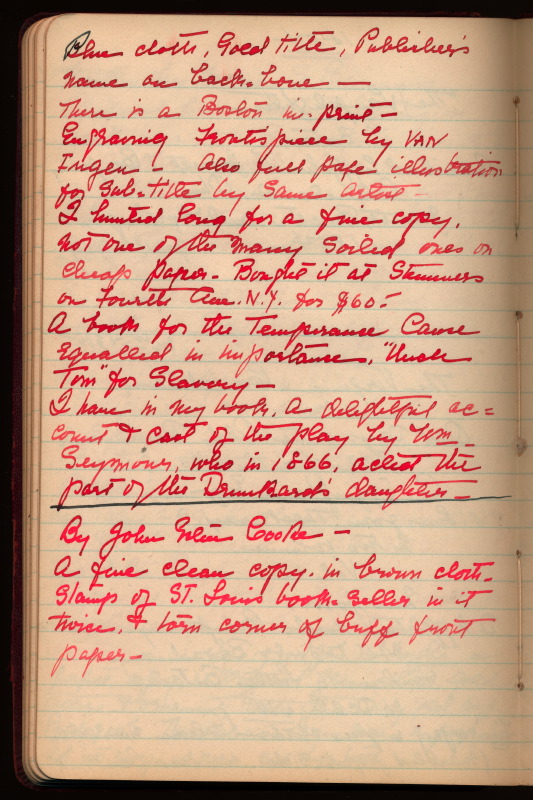 Blue cloth, Gold title, Publisher's
name on back-bone —
There is a Boston im-print —
Engraving Frontispiece by VAN
Ingen — Also full page illustration
for Sub-title by Same artist —
I hunted long for a fine copy,
not one of the many soiled ones on
cheap paper — Bought it at Stammers
on Fourth Ave. N.Y. for $60 —
A book for the Temperance Cause
Equalled in importance, "Uncle
Tom" for Slavery —
I have in my book, A delightful ac=
count & cast of the play by Wm.
Seymour, who in 1866, acted the
part of the Drunkard's daughter —
By John Esten Cooke —
A fine clean copy. in brown cloth —
Stamp of ST. Louis book-seller in it
twice, & torn corner of buff front
paper —